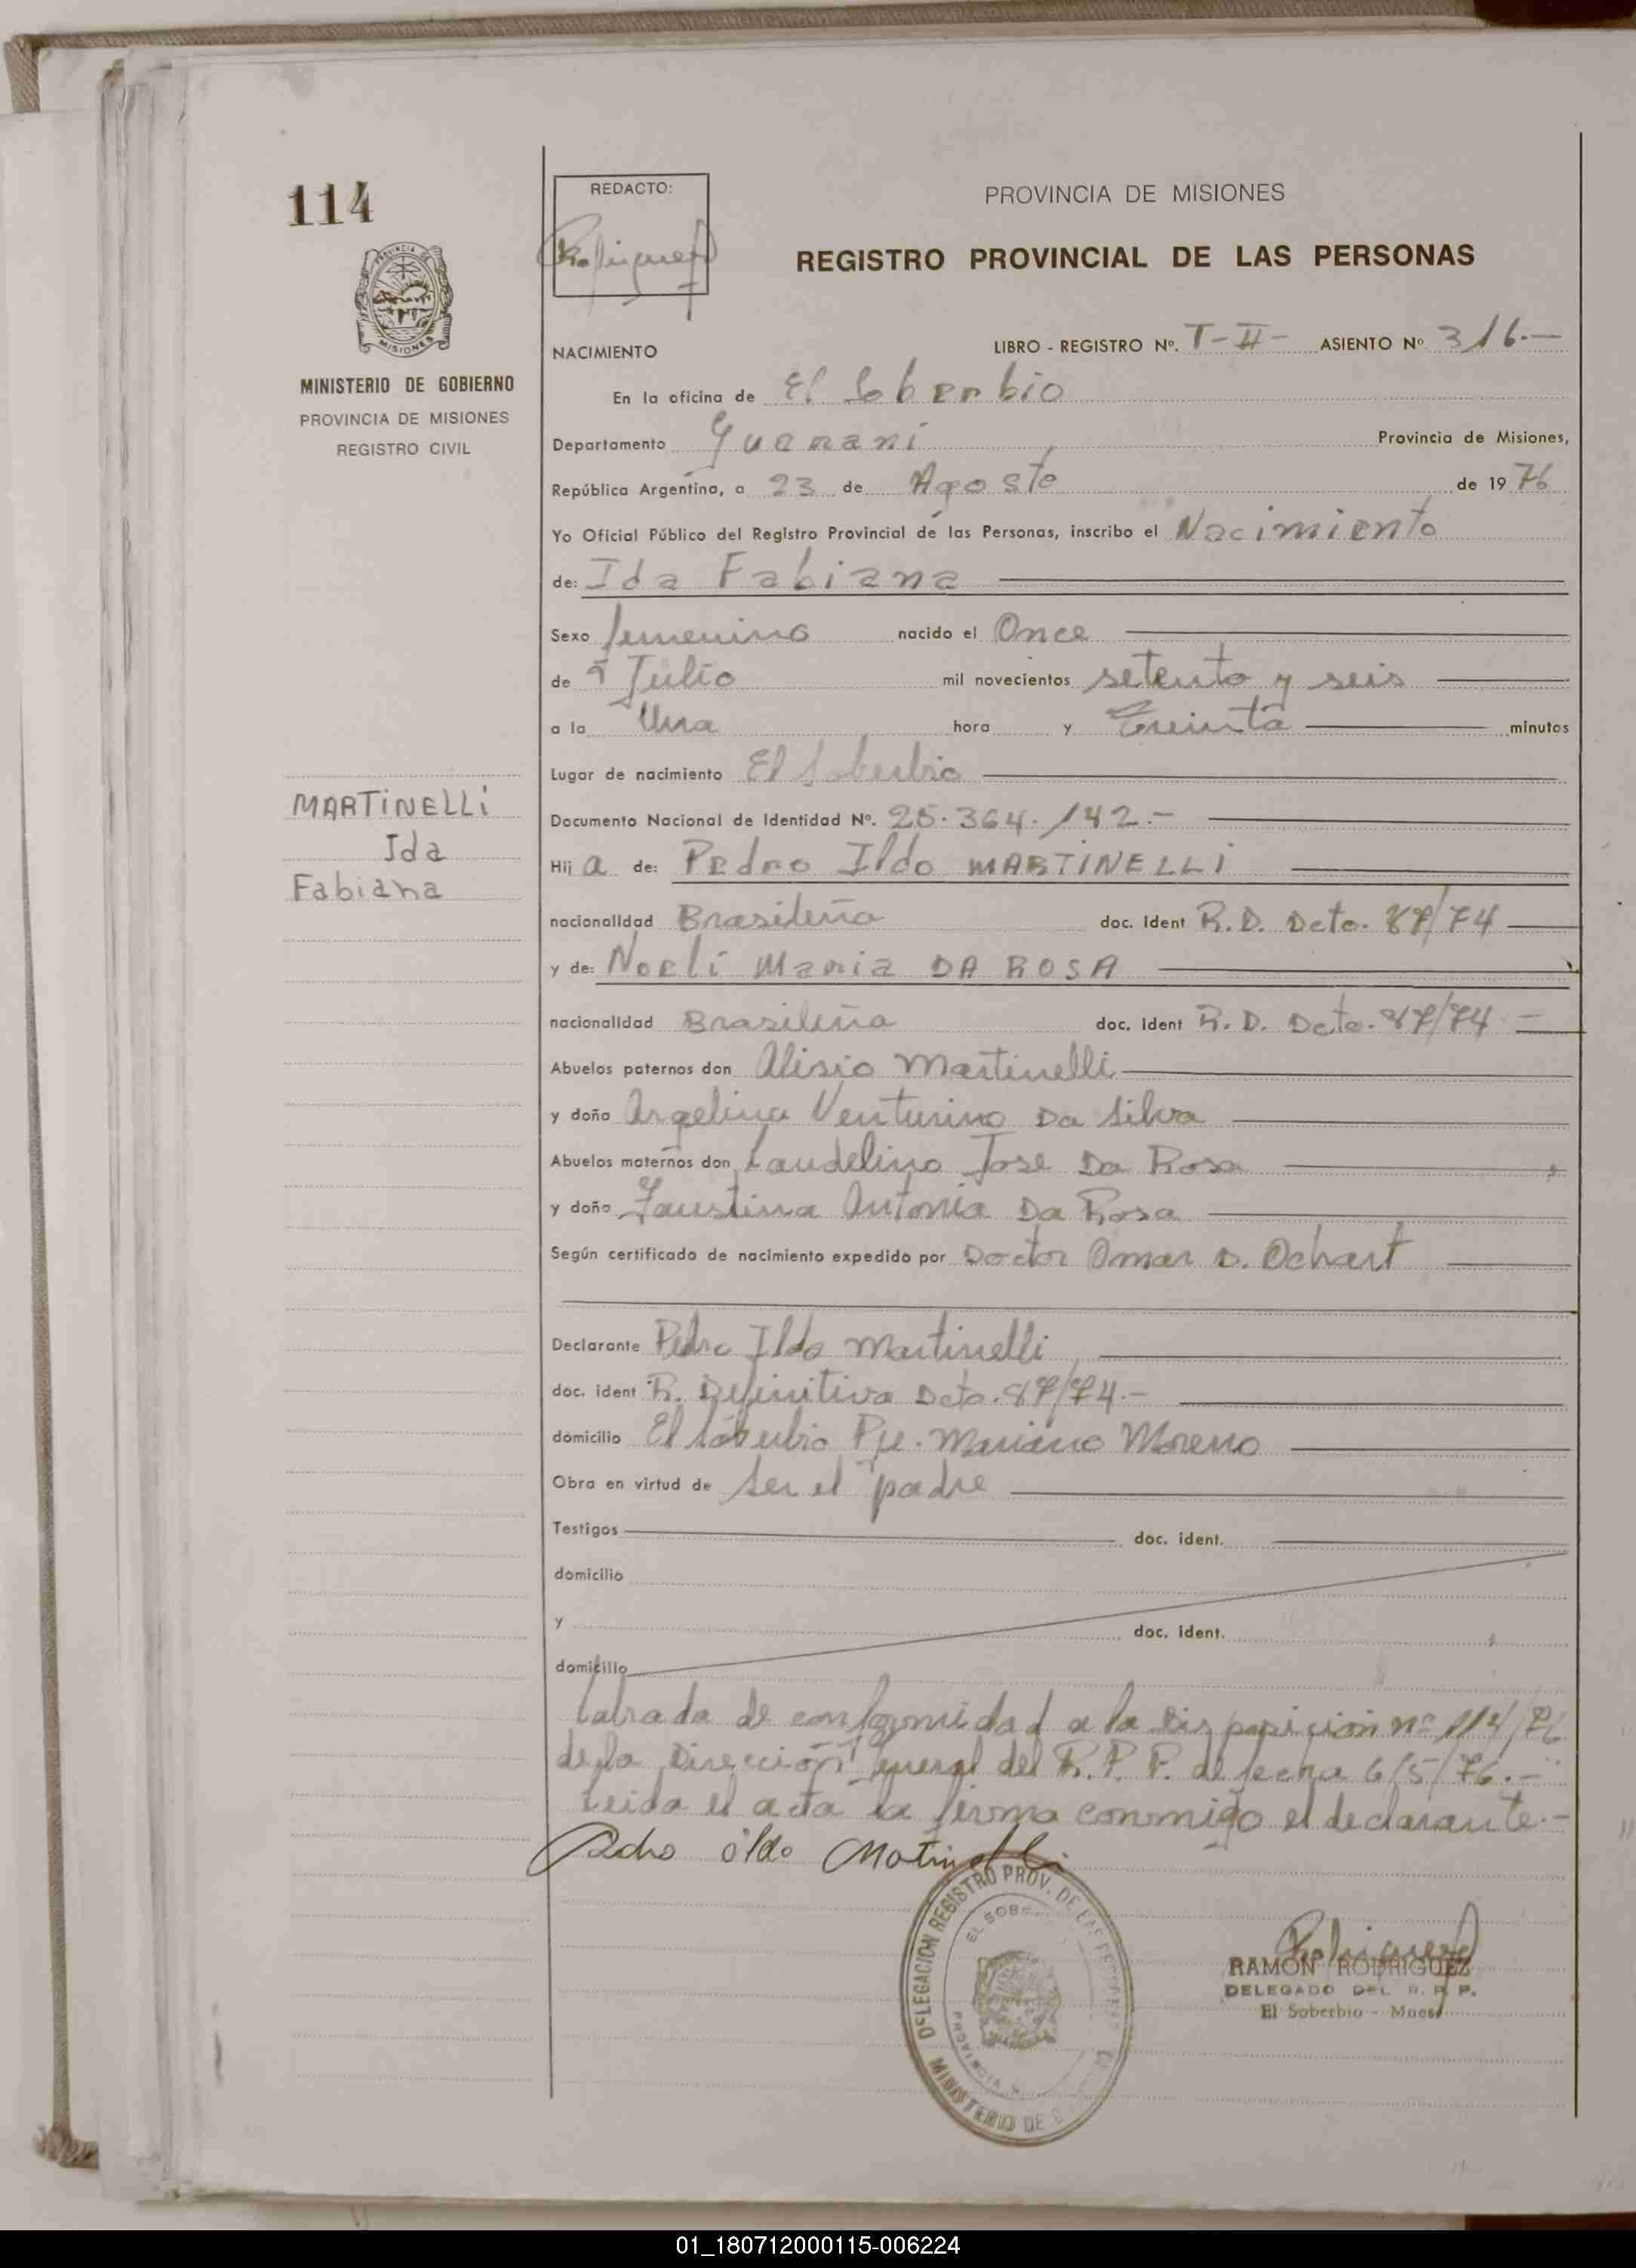 114
REDACTO:
Rodriguez
PROVINCIA DE MISIONES
REGISTRO PROVINCIAL DE LAS PERSONAS
PROVINCIA DE
MISIONES
MINISTERIO DE GOBIERNO
PROVINCIA DE MISIONES
REGISTRO CIVIL
NACIMIENTO LIBRO - REGISTRO Nº. T-II- ASIENTO Nº 316.-
En la oficina de El Soberbio
Departamento Guarani Provincia de Misiones,
República Argentina, a 23 de Agosto de 1976
Yo Oficial Público del Registro Provincial de las Personas, inscribo el Nacimiento
de: Ida Fabiana
Sexo femenino nacido el Once
de Julio mil novecientos setenta y seis
a la Una hora y Treinta minutos
Lugar de nacimiento El Soberbio
MARTINELLI
Ida
Fabiana
Documento Nacional de Identidad Nº. 25.364.142.-
Hija de: Pedro Ildo MARTINELLI
nacionalidad Brasileña doc. Ident R.D. Dcto. 87/74
y de: Noeli Maria DA ROSA
nacionalidad Brasileña doc. Ident R.D. Dcto. 87/74 -
Abuelos paternos don Alisio Martinelli
y doña Argelina Venturino Da Silva
Abuelos maternos don Laudelino Jose Da Rosa
y doña Faustina Antonia Da Rosa
Según certificado de nacimiento expedido por Doctor Omar D. Ochart
Declarante Pedro Ildo Martinelli
doc. ident R. Definitiva Dcto. 87/74.-
domicilio El Soberbio Pje. Mariano Moreno
Obra en virtud de ser el padre
Testigos doc. ident.
domicilio
y doc. ident.
domicilio
labrada de conformidad a la Disposición nº 114/76
de la Dirección General del R.P.P. de fecha 6/5/76.-
Leida el acta la firma conmigo el declarante.-
Pedro ildo Matinelli
DELEGACION REGISTRO PROV. DE LAS
EL SOB
PROVINCIA
MINISTERIO DE
Rodriguez
RAMON RODRIGUEZ
DELEGADO DEL R. P. P.
El Soberbio - Mnes
01_180712000115-006224